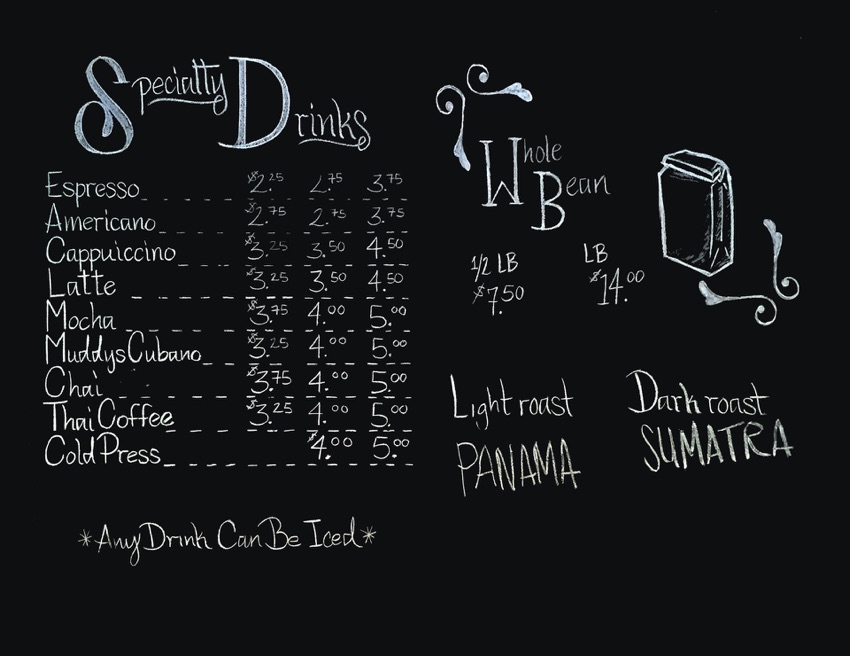 Specialty Drinks
Espresso $2.25 2.75 3.75
Americano $2.75 2.75 3.75
Cappuiccino $3.25 3.50 4.50
Latte $3.25 3.50 4.50
Mocha $3.75 4.00 5.00
Muddys Cubano $3.25 4.00 5.00
Chai $3.75 4.00 5.00
Thai Coffee $3.25 4.00 5.00
Cold Press $4.00 5.00
*Any Drink Can Be Iced*
Whole
Bean
1/2 LB LB
$7.50 $14.00
Light roast Dark roast
PANAMA SUMATRA